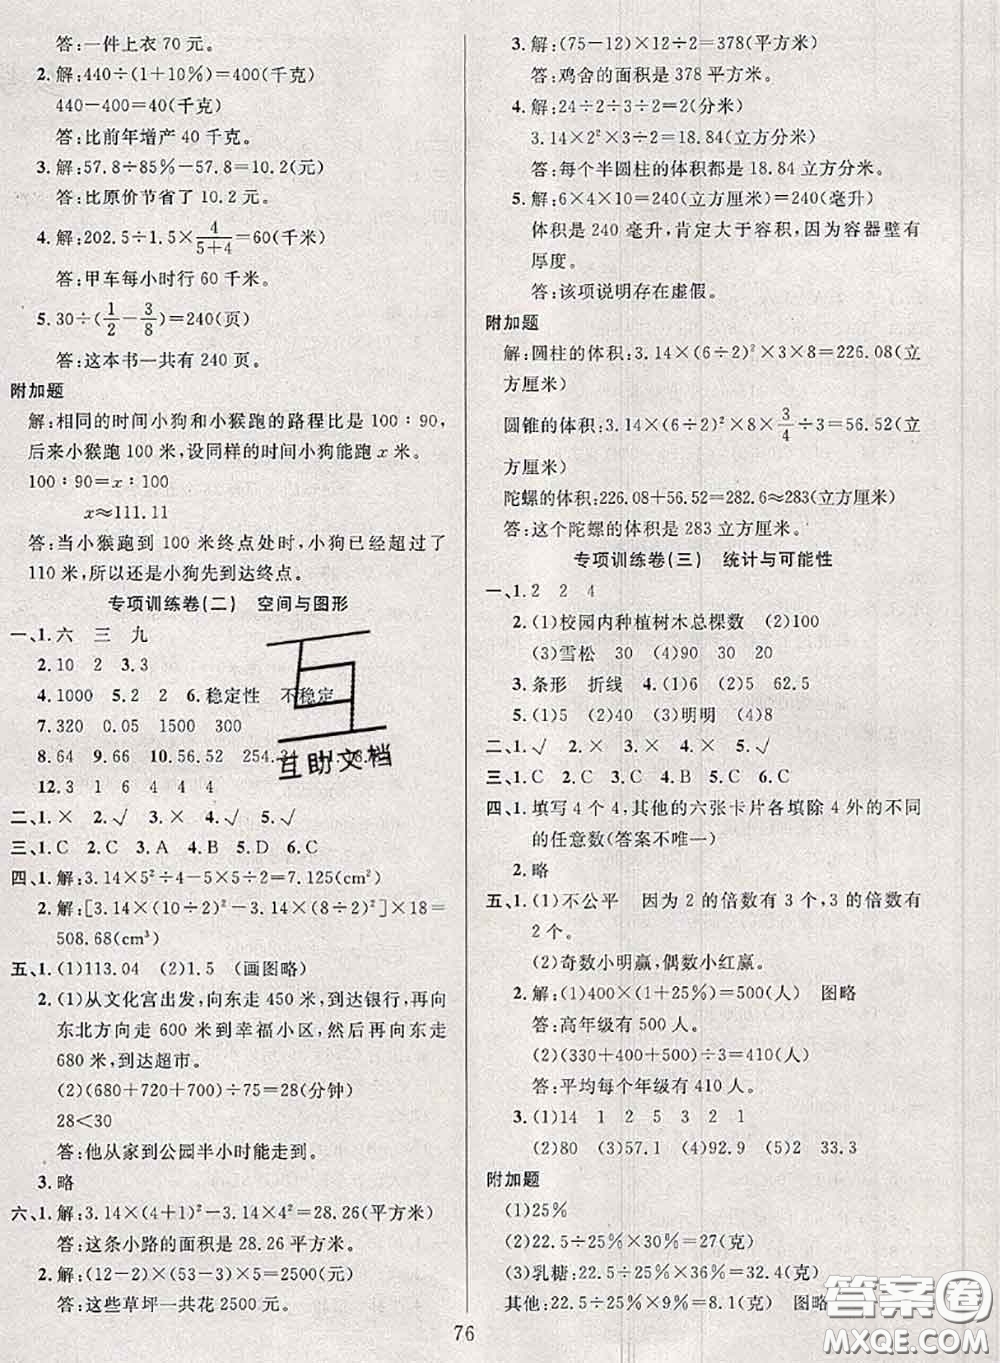 答:一件上衣70元。
2.解:440÷(1+10%)=400(千克)
440-400=40(千克)
答:比前年增产40千克。
3.解:57.8÷85%-57.8=10.2(元)
答:比原价节省了10.2元。
4.解:202.5÷1.5×4/(5+4)=60(千米)
答:甲车每小时行60千米。
5.30÷(1/2-3/8)=240(页)
答:这本书一共有240页。
附加题
解:相同的时间小狗和小猴跑的路程比是100:90,
后来小猴跑100米,设同样的时间小狗能跑x米。
100:90=x:100
x≈111.11
答:当小猴跑到100米终点处时,小狗已经超过了
110米,所以还是小狗先到达终点。
专项训练卷(二) 空间与图形
一、1.六 三 九
2.10 2 3.3
4.1000 5.2 2 6.稳定性 不稳定
7.320 0.05 1500 300
8.64 9.66 10.56.52 254.34
12.3 1 6 4 4 4
二、1.× 2.√ 3.× 4.√ 5.√
三、1.C 2.C 3.A 4.B 5.D 6.C
四、1.解:3.14×5²÷4-5×5÷2=7.125(cm²)
2.解:[3.14×(10÷2)²-3.14×(8÷2)²]×18=
508.68(cm³)
五、1.(1)113.04 (2)1.5 (画图略)
2.(1)从文化宫出发,向东走450米,到达银行,再向
东北方向走600米到幸福小区,然后再向东走
680米,到达超市。
(2)(680+720+700)÷75=28(分钟)
28<30
答:他从家到公园半小时能走到。
3.略
六、1.解:3.14×(4+1)²-3.14×4²=28.26(平方米)
答:这条小路的面积是28.26平方米。
2.解:(12-2)×(53-3)×5=2500(元)
答:这些草坪一共花2500元。
3.解:(75-12)×12÷2=378(平方米)
答:鸡舍的面积是378平方米。
4.解:24÷2÷3÷2=2(分米)
3.14×2²×3÷2=18.84(立方分米)
答:每个半圆柱的体积都是18.84立方分米。
5.解:6×4×10=240(立方厘米)=240(毫升)
体积是240毫升,肯定大于容积,因为容器壁有
厚度。
答:该项说明存在虚假。
附加题
解:圆柱的体积:3.14×(6÷2)²×3×8=226.08(立
方厘米)
圆锥的体积:3.14×(6÷2)²×8×3/4÷3=56.52(立
方厘米)
陀螺的体积:226.08+56.52=282.6≈283(立方厘米)
答:这个陀螺的体积是283立方厘米。
专项训练卷(三) 统计与可能性
一、1.2 2 4
2.(1)校园内种植树木总棵数 (2)100
(3)雪松 30 (4)90 30 20
3.条形 折线 4.(1)6 (2)5 62.5
5.(1)5 (2)40 (3)明明 (4)8
二、1.√ 2.× 3.× 4.× 5.√
三、1.C 2.C 3.C 4.B 5.C 6.C
四、1.填写4个4,其他的六张卡片各填除4外的不同
的任意数(答案不唯一)
2.略
五、1.(1)不公平 因为2的倍数有3个,3的倍数有
2个。
(2)奇数小明赢,偶数小红赢。
2.解:(1)400×(1+25%)=500(人) 图略
答:高年级有500人。
(2)(330+400+500)÷3=410(人)
答:平均每个年级有410人。
3.(1)14 1 2 5 3 2 1
(2)80 (3)57.1 (4)92.9 (5)2 33.3
附加题
(1)25%
(2)22.5÷25%×30%=27(克)
(3)乳糖:22.5÷25%×36%=32.4(克)
其他:22.5÷25%×9%=8.1(克) 图略
76
互助文档
答案圈
MXQE.COM